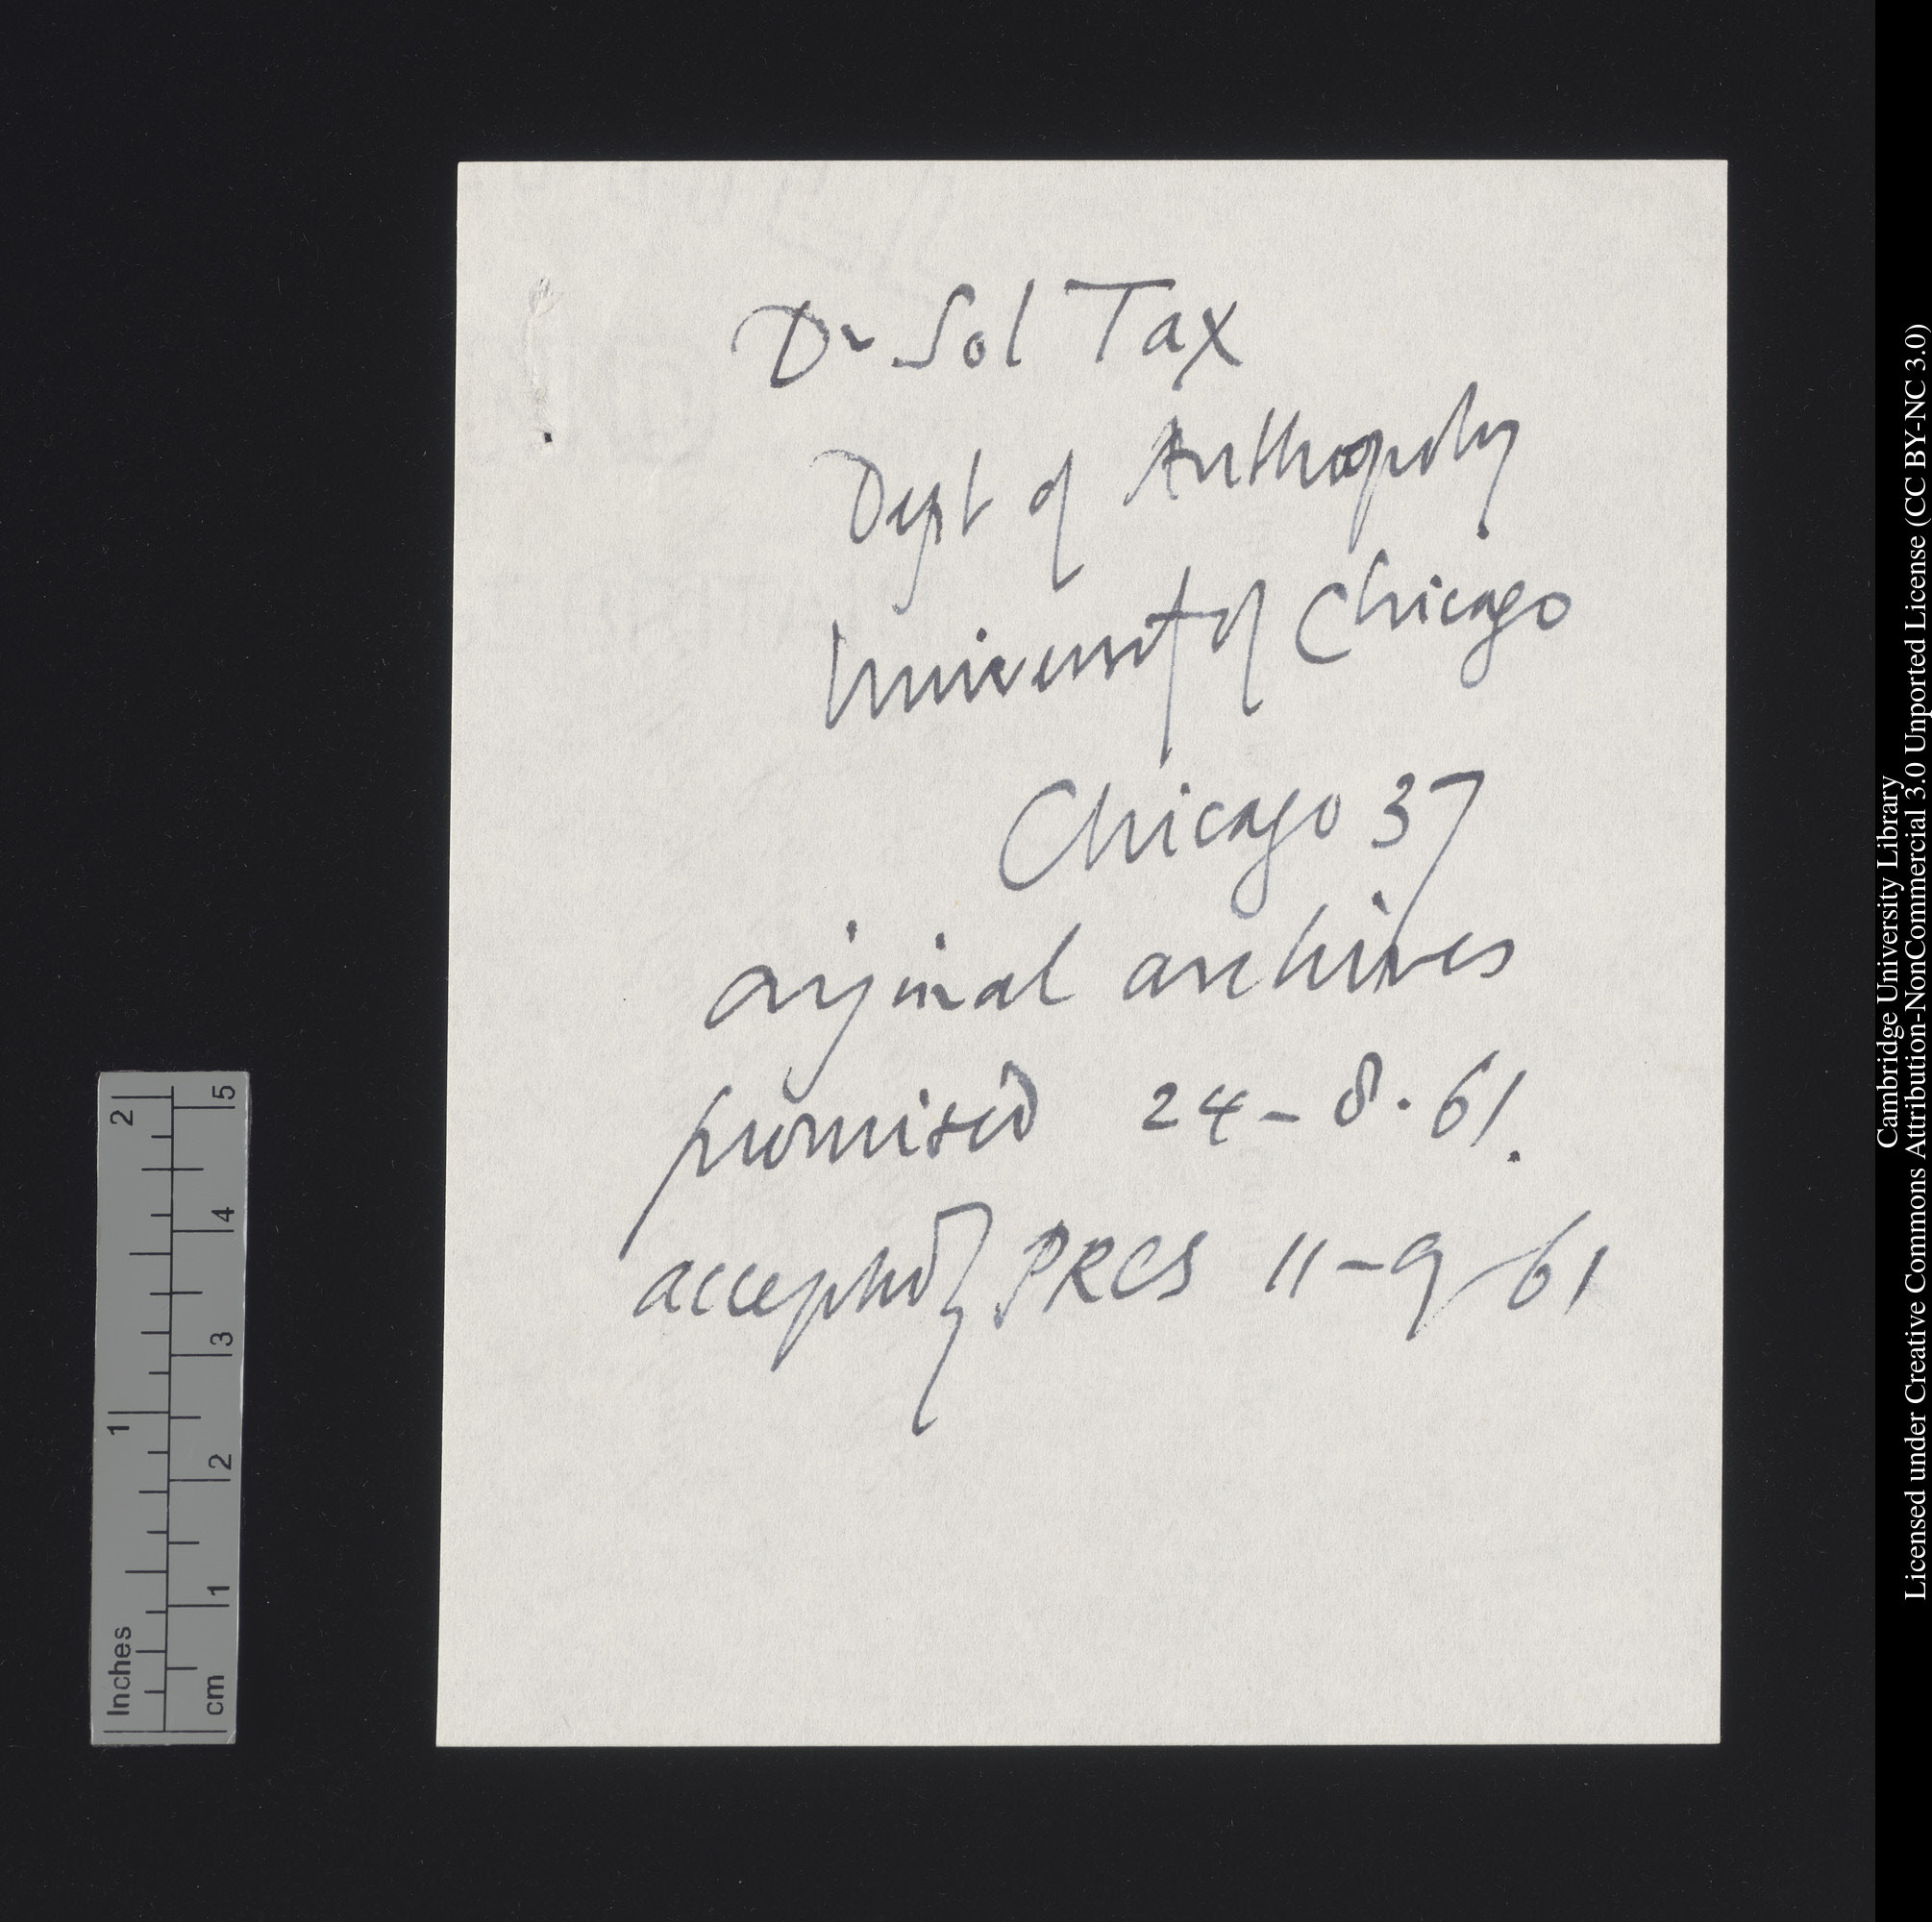 Dr Sol Tax
Dept of Anthropology
University of Chicago
Chicago 37
original archives
promised 24-8.61.
accepted by PRCS 11-9-61
Inches 1 2
cm 1 2 3 4 5
Cambridge University Library
Licensed under Creative Commons Attribution-NonCommercial 3.0 Unported License (CC BY-NC 3.0)